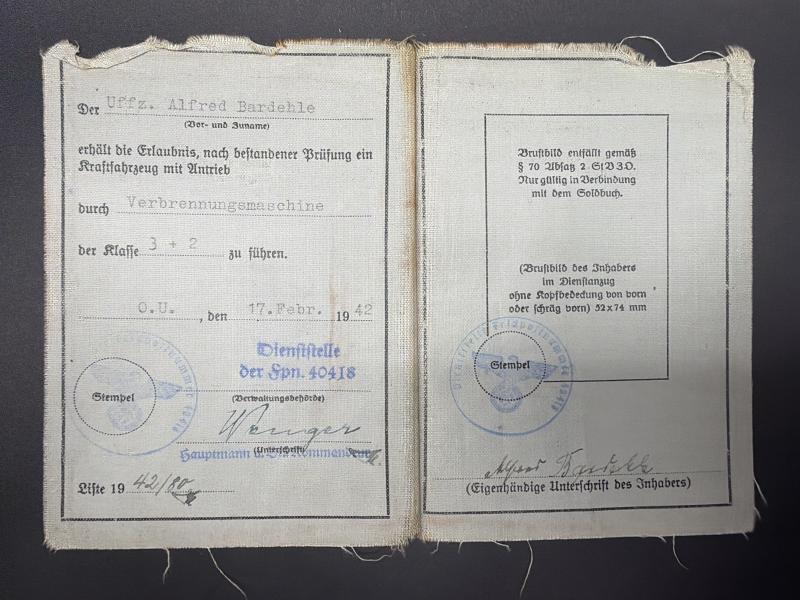 Der Uffz. Alfred Bardehle
(Vor- und Zuname)
erhält die Erlaubnis, nach bestandener Prüfung ein
Kraftfahrzeug mit Antrieb
durch Verbrennungsmaschine
der Klasse 3 + 2 zu führen.
O.U. , den 17.Febr. 1942
Dienststelle
der Fpn. 40418
Stempel
(Verwaltungsbehörde)
Wenger
(Unterschrift)
Hauptmann u.
Liste 19 42/80
Brustbild entfällt gemäß
§ 70 Absatz 2 StVZO.
Nur gültig in Verbindung
mit dem Soldbuch.
(Brustbild des Inhabers
im Dienstanzug
ohne Kopfbedeckung von vorn
oder schräg vorn) 52x74 mm
Dienststelle Feldpostnummer 40418
Stempel
Alfred Bardehle
(Eigenhändige Unterschrift des Inhabers)